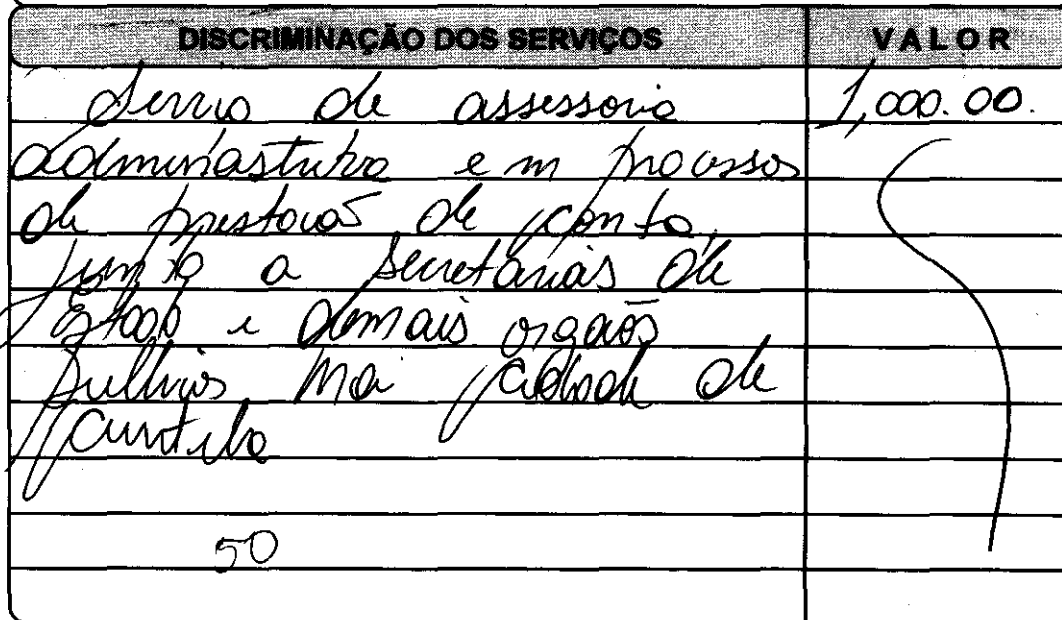 DISCRIMINAÇÃO DOS SERVIÇOS VALOR
de assessoria 1,000.00.
administrativa em processos
de prestação de conta,
junto a secretarias de
Estado e demais orgãos
publicos na cidade de
Curitiba
50